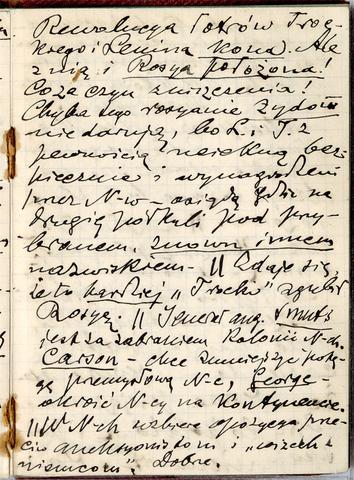 Rewolucja łotrów Troc-
kiego i Lenina kona. Ale
z nią i Rosya położona!
Co za czyn zniszczenia!
Chyba tego rosyanie Żydom
nie darują, bo L. i T. z
pewnością uciekną bez-
piecznie i wynagrodzeni
przez N-w – osiądą gdzieś na
drugiej półkuli pod przy-
branem, znowu innem
nazwiskiem. || Zdaje się,
że to bardziej „Trocki" zgubił
Rosyę. || Generał ang. Smuts
jest za zabraniem Kolonii N-m.
Carson – chce zmniejszyć potę-
gę przemysłową N-c, George –
określić N-cy na Kontynencie.
|| W N-ch wzbiera opozycya prze-
ciw aneksyonistom i „wszech-
niemcom". Dobre.